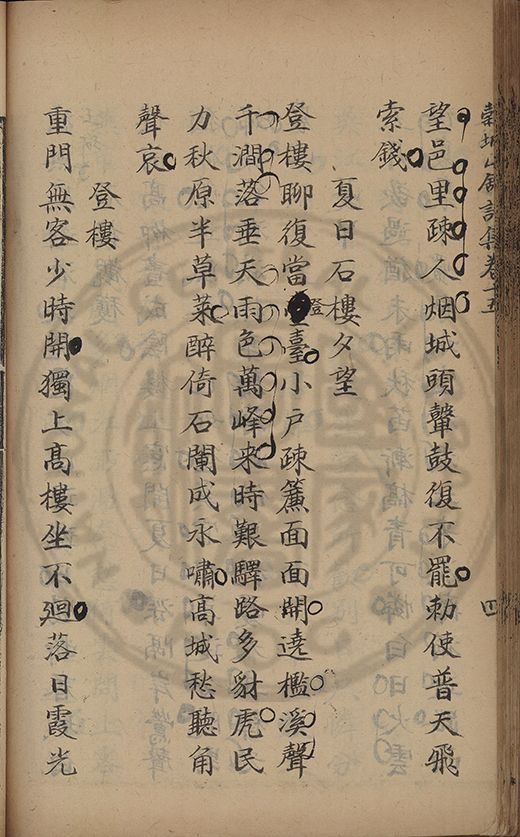 望邑里疎人烟城頭鼙鼓復不罷勅使普天飛
索錢
夏日石樓夕望
登樓聊復當登臺小户疎簾面面開遶檻溪聲
千澗落垂天雨色萬峰来時艱驛路多豺虎民
力秋原半草萊醉倚石闌成永嘯髙城愁聽角
聲哀
登樓
重門無客少時開獨上髙樓坐不廻落日霞光
詩集卷十五
四